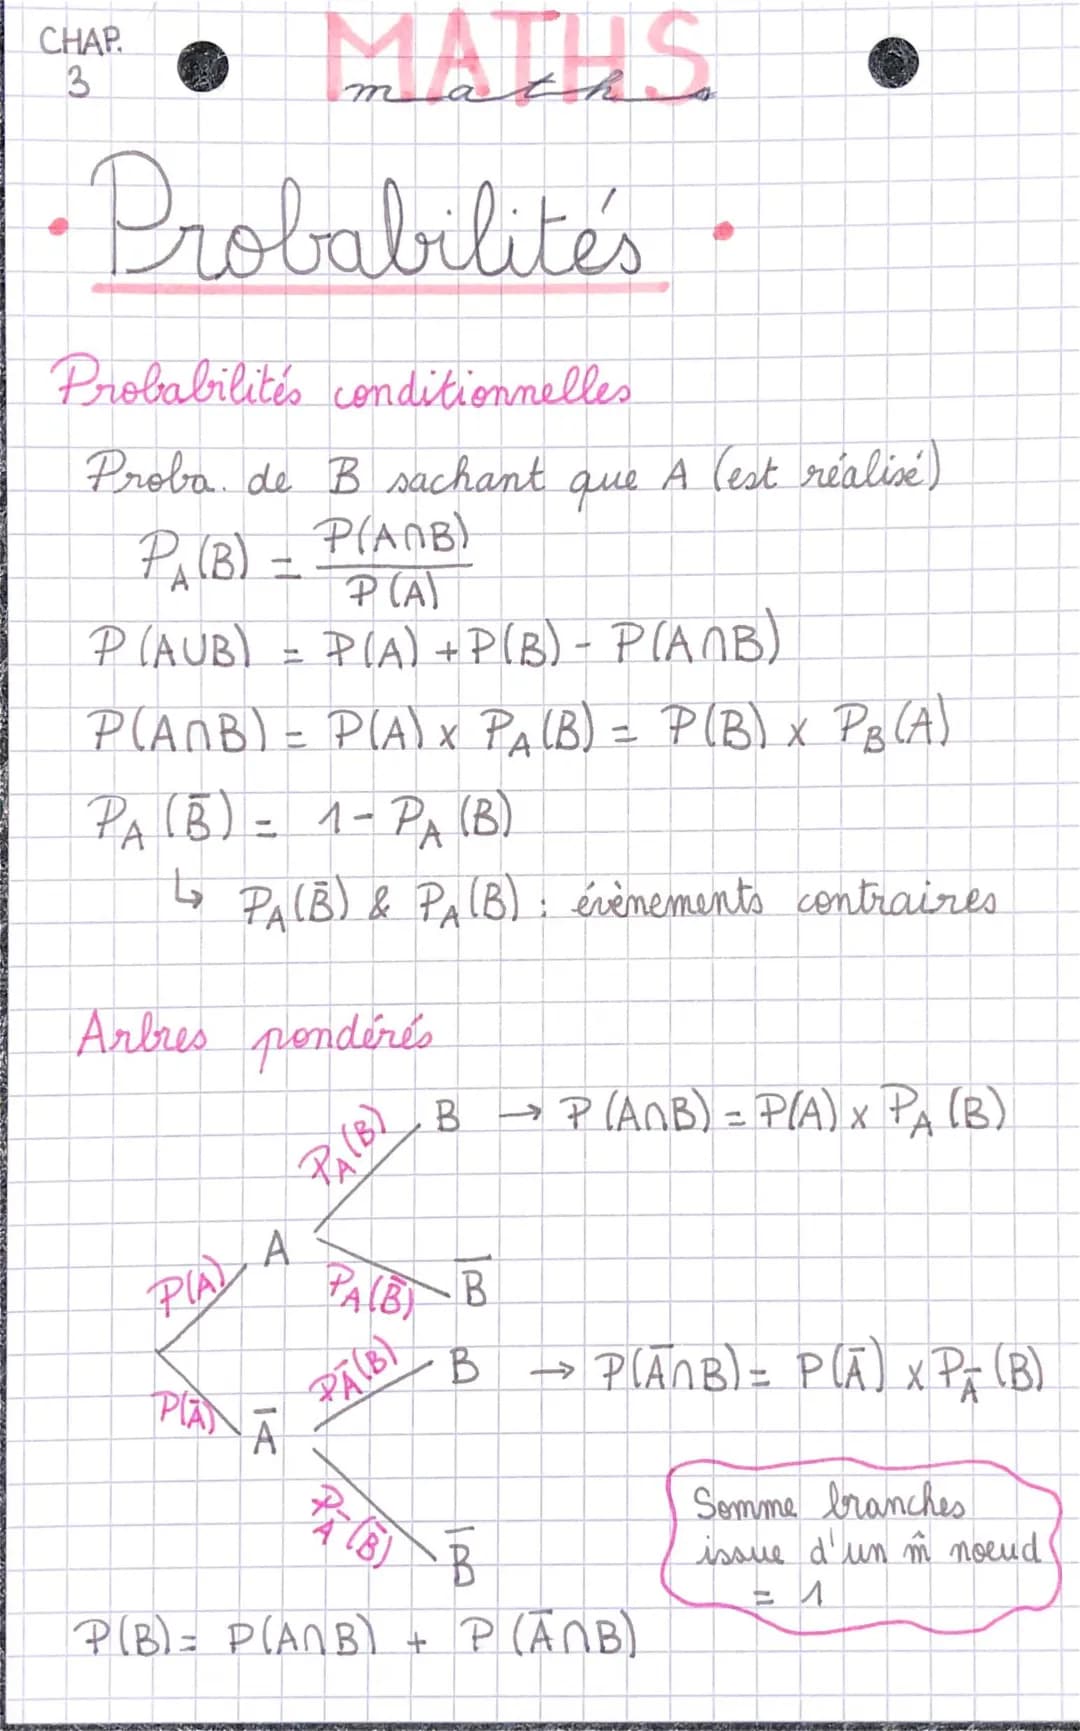 CHAP.
3
MATHS
maths
• Probabilités •
Probabilités conditionnelles
Proba. de B sachant que A (est réalisé)
P_A(B) = P(A∩B) / P(A)
P(A∪B) = P(A) + P(B) - P(A∩B)
P(A∩B) = P(A) x P_A(B) = P(B) x P_B(A)
P_A(B̄) = 1 - P_A(B)
↳ P_A(B̄) & P_A(B) : évènements contraires
Arbres pondérés
P_A(B) B → P(A∩B) = P(A) x P_A(B)
P(A) A
P_A(B̄) B̄
P_Ā(B) B → P(Ā∩B) = P(Ā) x P_Ā(B)
P(Ā) Ā
P_Ā(B̄) B̄
Somme branches
issue d'un m̂ noeud
= 1
P(B) = P(A∩B) + P(Ā∩B)